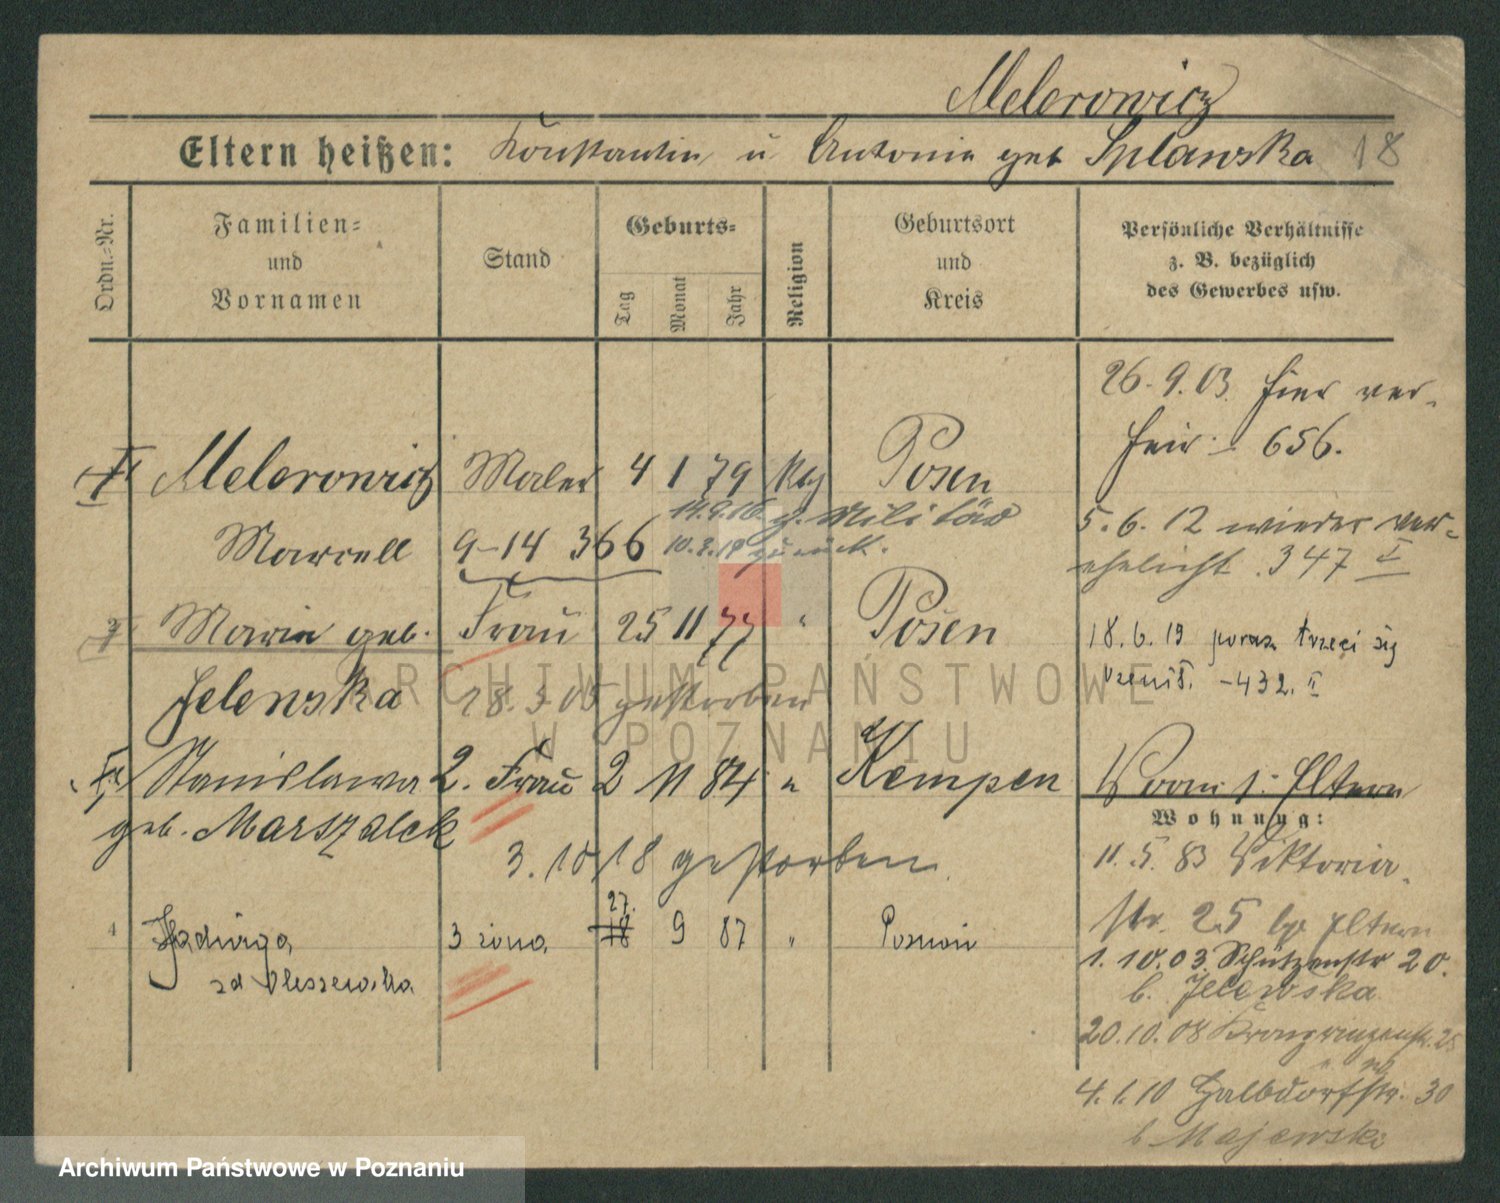 Melerowicz
Eltern heißen: Konstantin u Antonie geb Splawska 18
Ordn.-Nr.
Familien- und Vornamen
Stand
Geburts-
Tag
Monat
Jahr
Religion
Geburtsort und Kreis
Persönliche Verhältnisse
z. B. bezüglich
des Gewerbes usw.
26.9.03. hier ver-
heir. 656.
Melerowicz Maler 4 1 79 Posen
14.9.16. z. Militär
5.6.12 wieder ver-
Marcell 9-14 366 10.2.19 zurück.
ehelicht 347 I
Marie geb. Frau 25 11 77 " Posen
18.6.19 poraz trzeci się
Jelenska 28.3.05 gestorben
ożenił. -432. II
Stanislawa 2. Frau 2 11 84 " Kempen
Vorm s. Eltern
Wohnung:
geb. Marszalek
3.10/18 gestorben.
11.5.83 Viktoria-
str. 25 bei Eltern
4 Jadwiga 3 żona 27. 18 9 87 " Poznań
1.10.03 Schützenstr 20.
b. Jelewska
20.10.08 Kronprinzenstr. 25
4.1.10 Halbdorfstr. 30
b Majewski
ARCHIWUM PAŃSTWOWE
W POZNANIU
Archiwum Państwowe w Poznaniu